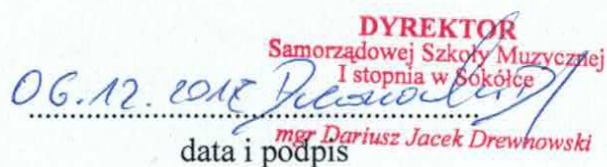 DYREKTOR
Samorządowej Szkoły Muzycznej
I stopnia w Sokółce
06.12.
mgr Dariusz Jacek Drewnowski
data i podpis